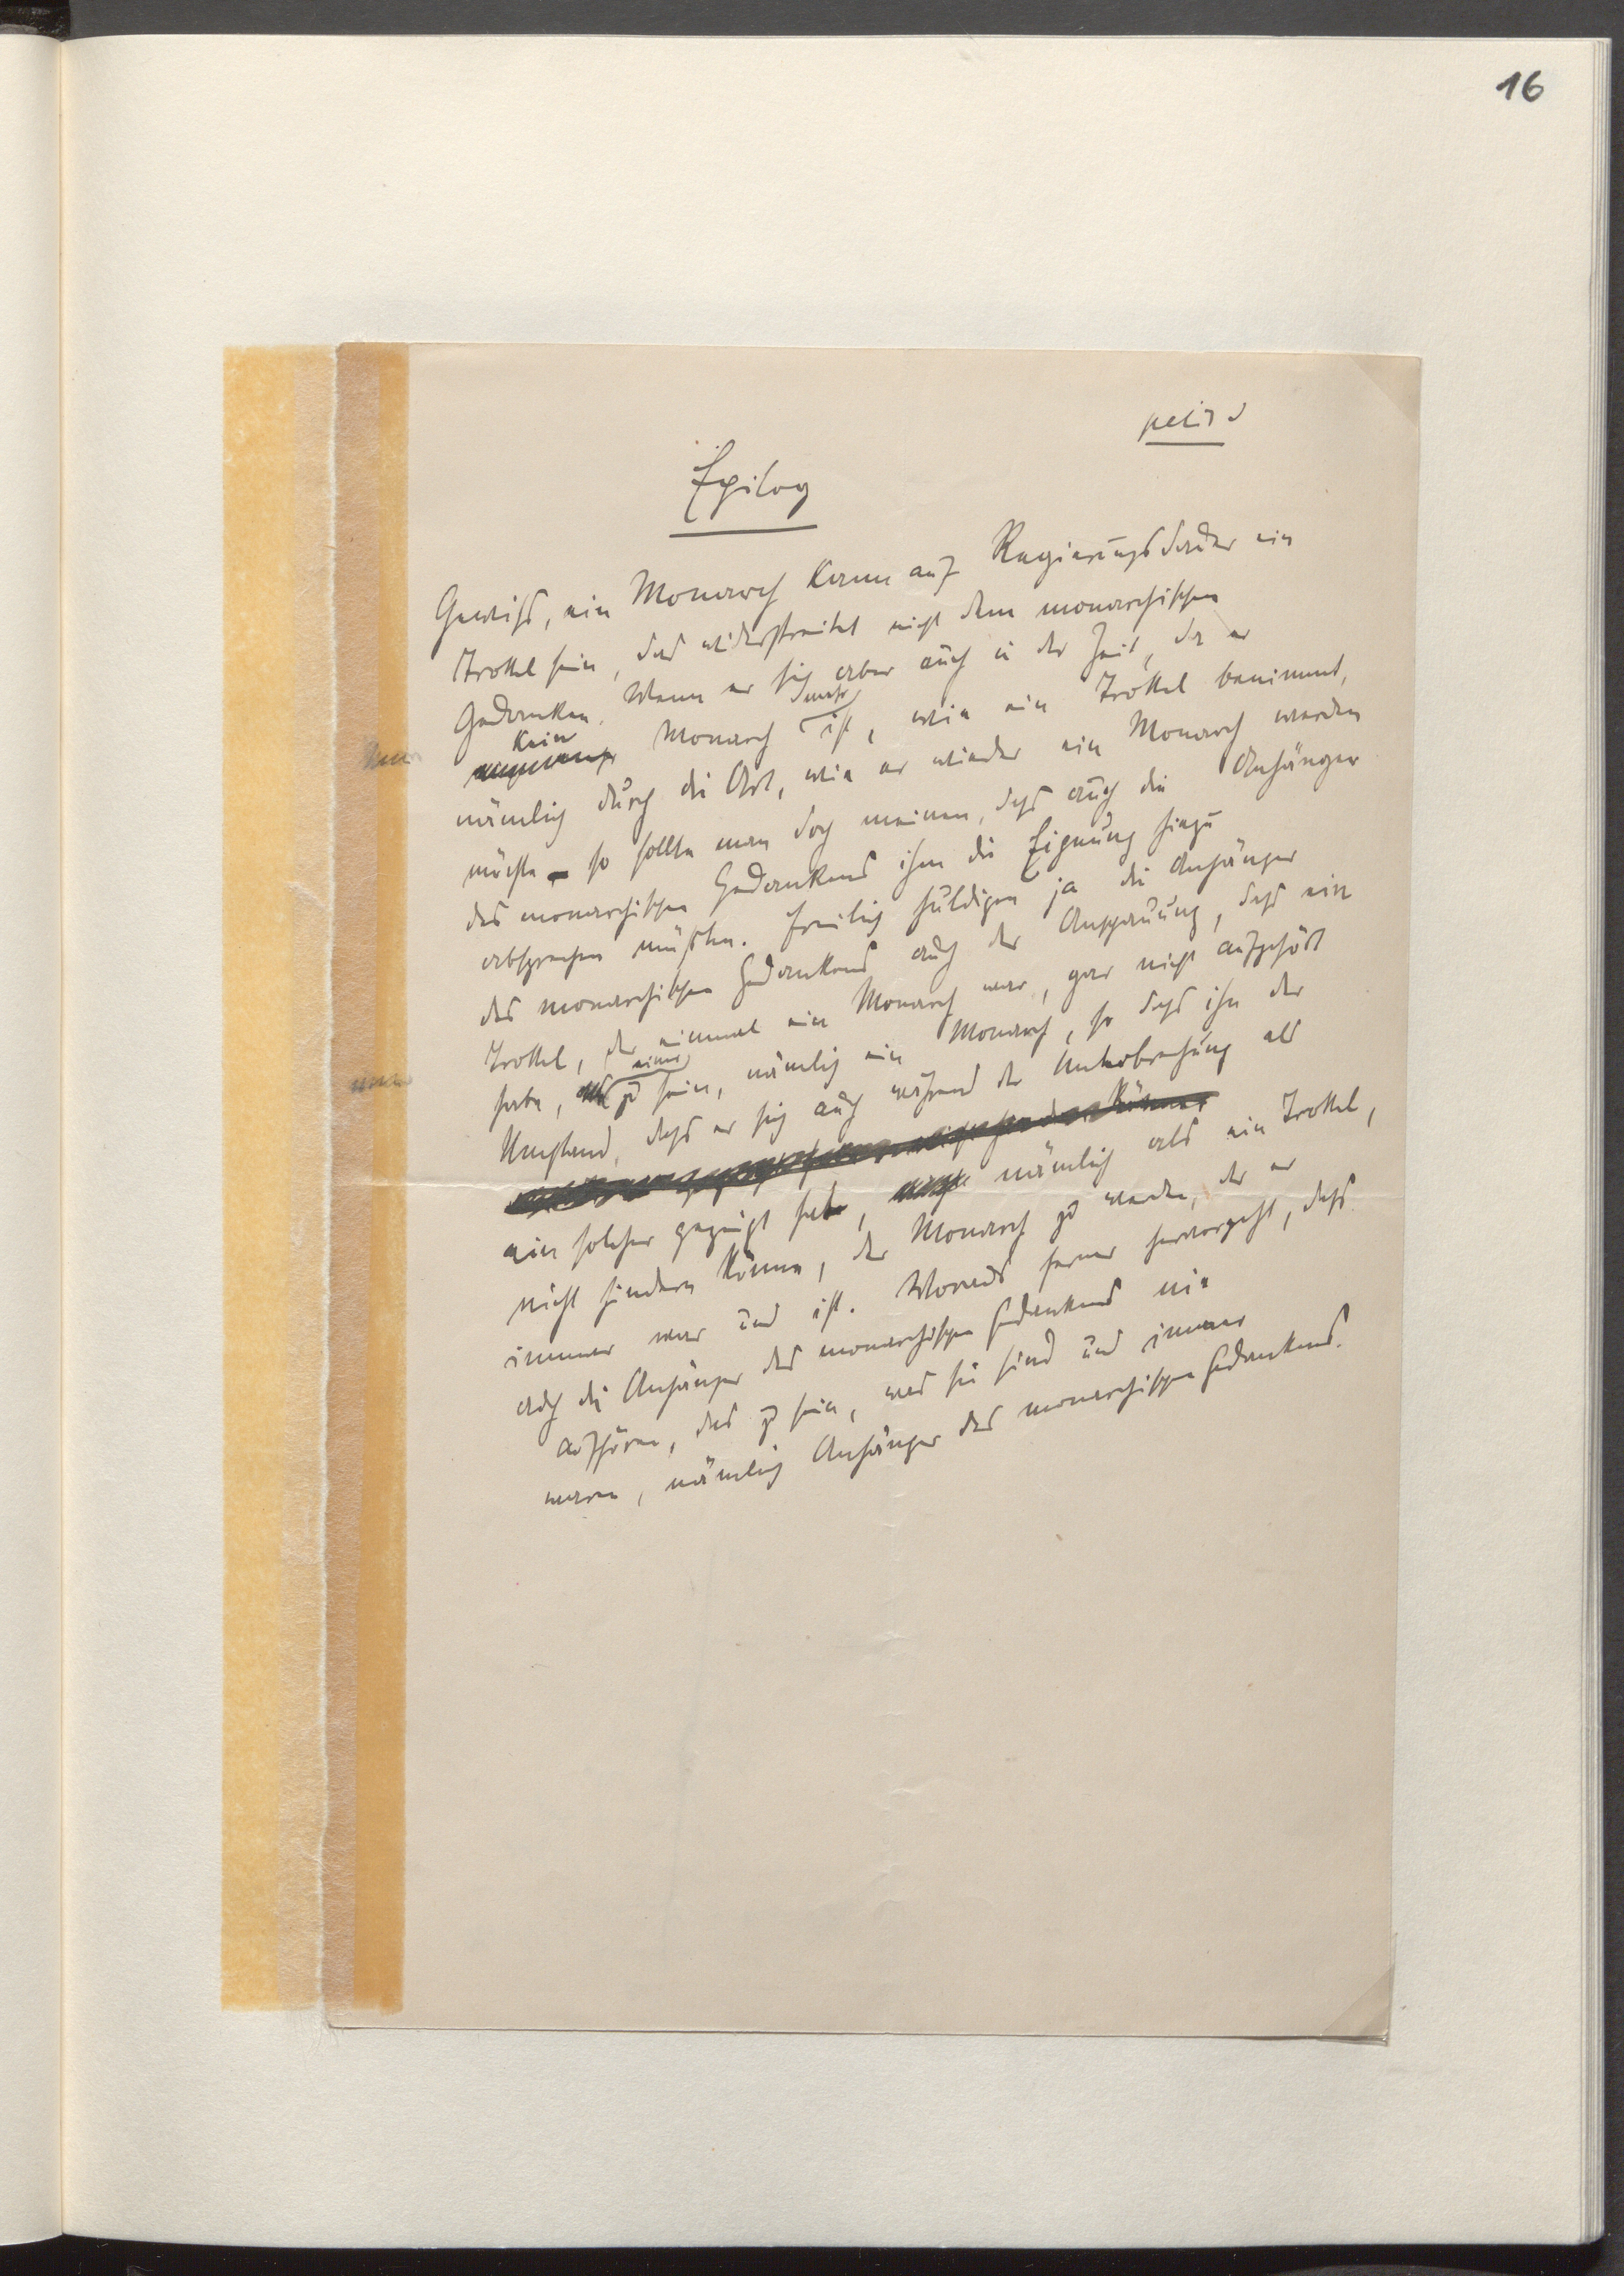 16
petit
Epilog
Gewiß, ein Monarch kann auf Regierungsdauer ein
Trottel sein, das widerstreitet nicht dem monarchischen
Gedanken. Wenn er sich aber auch in der Zeit, da er
kein Monarch mehr ist, wie ein Trottel benimmt,
nämlich durch die Art, wie er wieder ein Monarch werden
möchte – so sollte man doch meinen, daß auch die Anhänger
des monarchischen Gedankens ihm die Eignung hiezu
absprechen müßten. Freilich huldigen ja die Anhänger
des monarchischen Gedankens auch der Anschauung, daß ein
Trottel, der einmal ein Monarch war, gar nicht aufgehört
habe, einer zu sein, nämlich ein Monarch, so daß ihn der
Umstand, daß er sich auch während der Unterbrechung als
ein solcher gezeigt habe, nämlich als ein Trottel,
nicht hindern könne, der Monarch zu werden, der er
immer war und ist. Woraus ferner hervorgeht, daß
auch die Anhänger des monarchischen Gedankens nie
aufhören, das zu sein, was sie sind und immer
waren, nämlich Anhänger des monarchischen Gedankens.